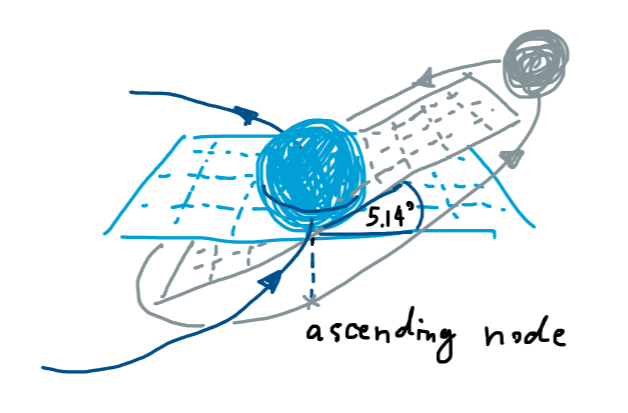 5.14°
ascending node